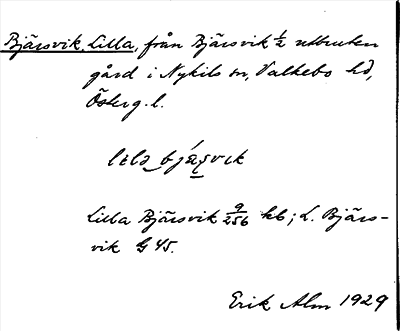 Bjärsvik, Lilla, från Bjärsvik ½ utbruten
gård i Nykils sn, Valkebo hd,
Österg. l.
lɩlɑ bjá̤ʂvɩk
Lilla Bjärsvik 9/256 kb; L. Bjärs-
vik G 45.
Erik Alm 1929